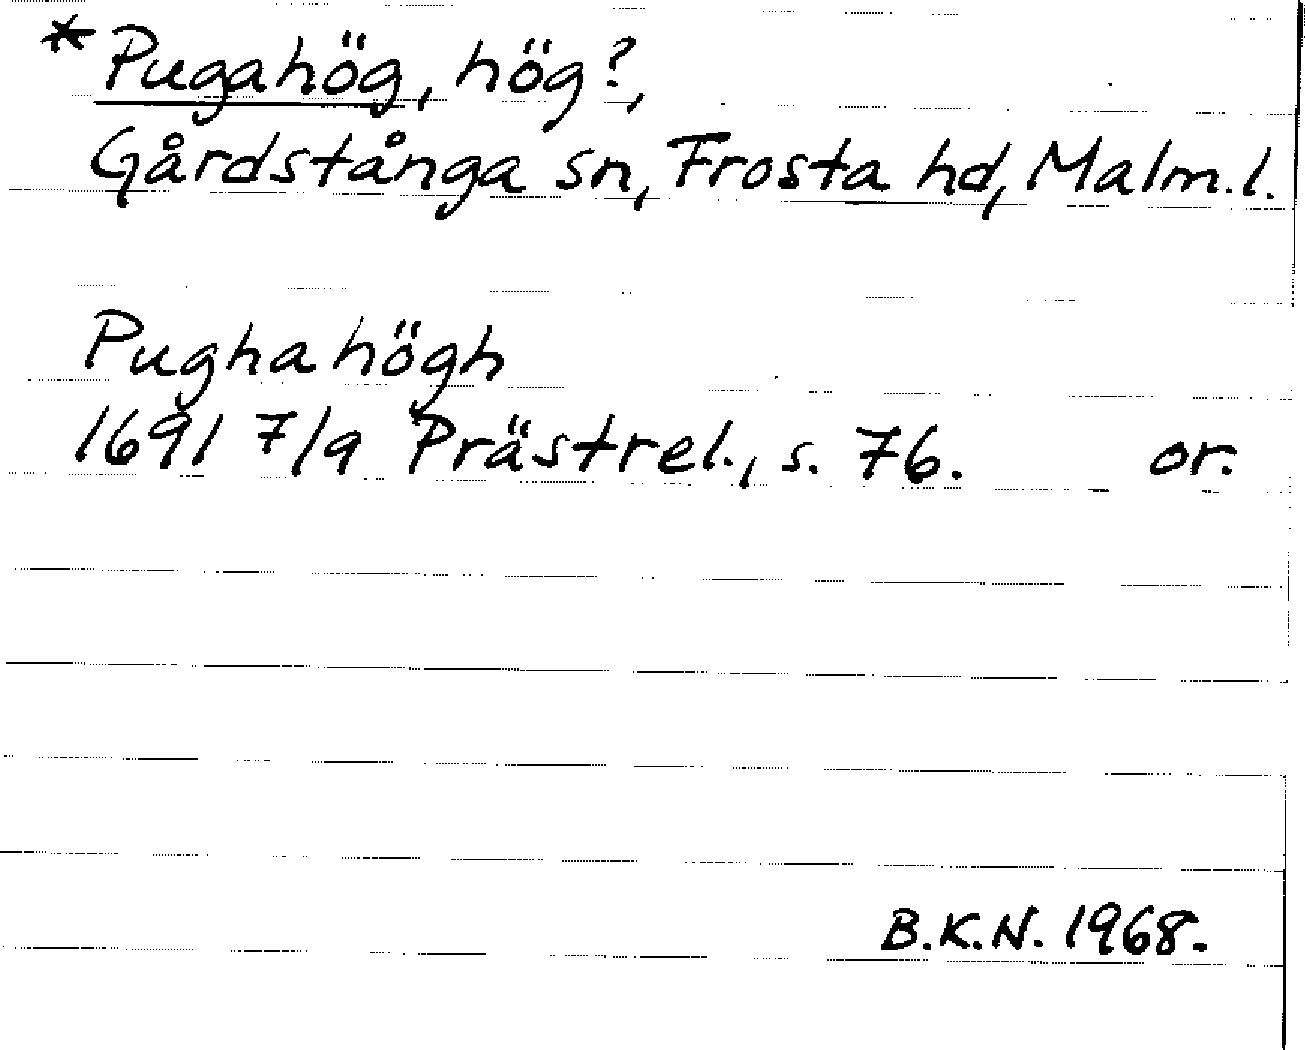 *Pugahög, hög?,
Gårdstånga sn, Frosta hd, Malm.l.
Pugha högh
1691 7/9 Prästrel., s. 76. or.
B.K.N. 1968.